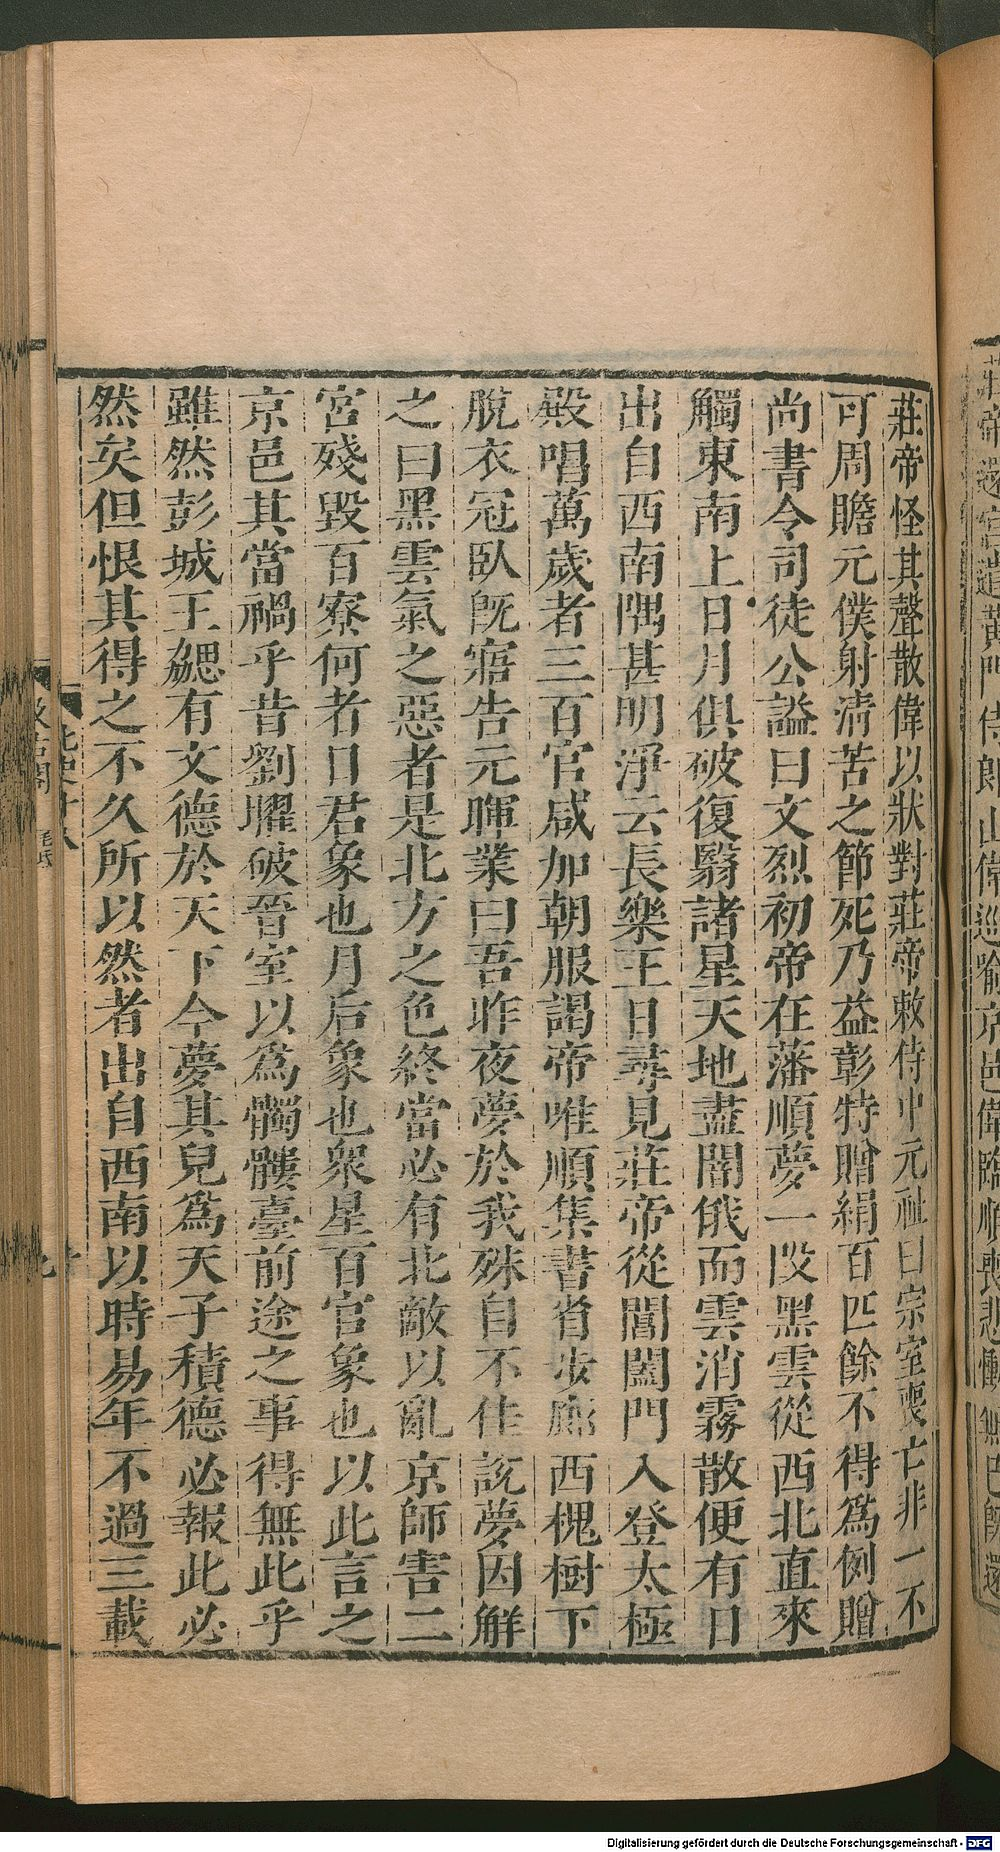 莊帝怪其聲散偉以狀對莊帝敕侍中元祉曰宗室喪亡非一不
可周贍元僕射清苦之節死乃益彰特贈絹百匹餘不得爲例贈
尚書令司徒公謚曰文烈初帝在藩順夢一段黑雲從西北直來
觸東南上日月俱破復翳諸星天地盡闇俄而雲消霧散便有日
出自西南隅甚明淨云長樂王日尋見莊帝從閶闔門入登太極
殿唱萬歲者三百官咸加朝服謁帝唯順集書省步廊西槐樹下
脫衣冠臥既寤告元暉業曰吾昨夜夢於我殊自不佳說夢因解
之曰黑雲氣之惡者是北方之色終當必有北敵以亂京師害二
宮殘毀百寮何者日君象也月后象也衆星百官象也以此言之
京邑其當禍乎昔劉曜破晉室以爲髑髏臺前途之事得無此乎
雖然彭城王勰有文德於天下今夢其兒爲天子積德必報此必
然矣但恨其得之不久所以然者出自西南以時易年不過三載
Digitalisierung gefördert durch die Deutsche Forschungsgemeinschaft - DFG